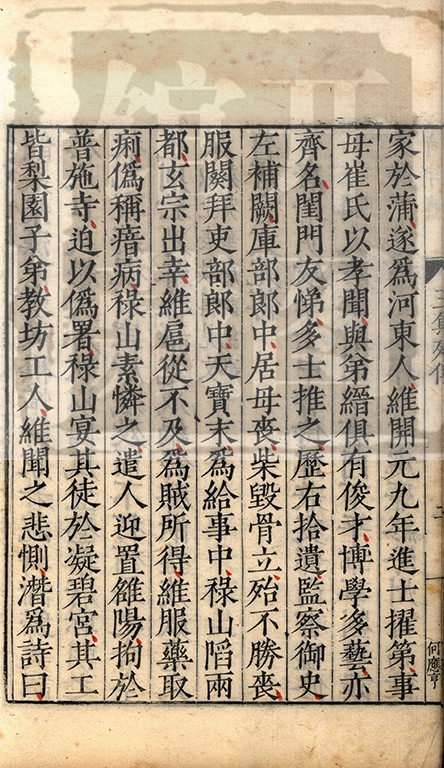 家於蒲遂爲河東人維開元九年進士擢第事
母崔氏以孝聞與弟縉俱有俊才博學多藝亦
齊名閨門友悌多士推之歷右拾遺監察御史
左補闕庫部郎中居母喪柴毀骨立殆不勝喪
服闋拜吏部郎中天寶末爲給事中祿山陷兩
都玄宗出幸維扈從不及爲賊所得維服藥取
痢僞稱瘖病祿山素憐之遣人迎置雒陽拘於
普施寺迫以僞署祿山宴其徒於凝碧宮其工
皆梨園子弟教坊工人維聞之悲惻潛爲詩曰
何應亨